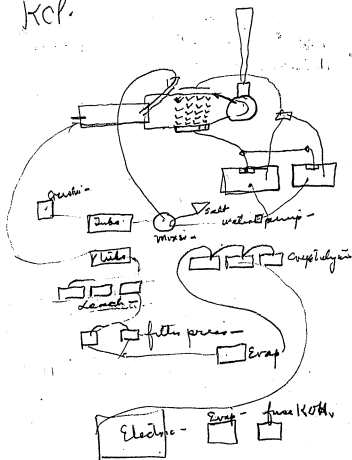 KCl.
Crusher
Tubs.
Salt
Mixer
water pump
V tubs
Leach
Crystalyzer
filter press
Evap
Electric
Evap
fuse KOH.